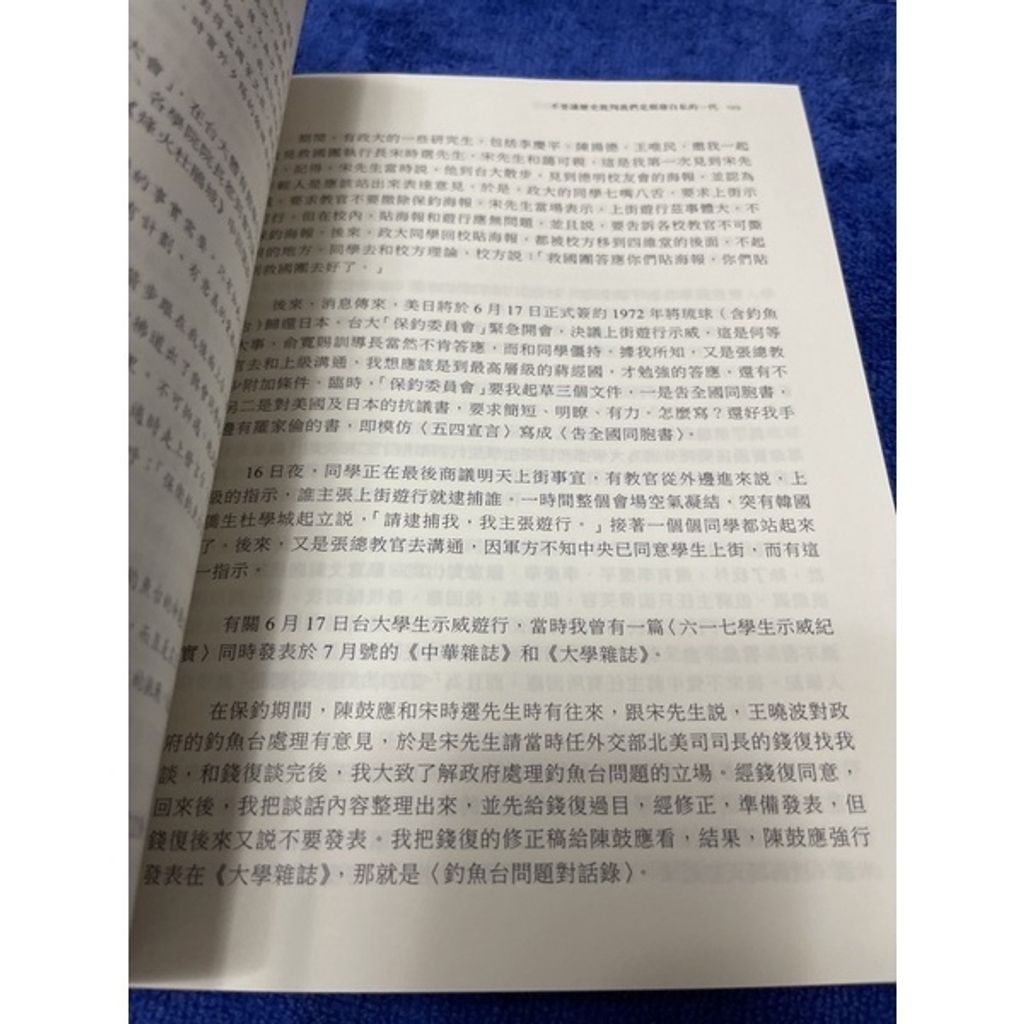 不要讓歷史批判我們是頹廢自私的一代
期間，有政大的一些研究生，包括李慶平、陳揚德、王唯民，邀我一起
見救國團執行長宋時選先生，宋先生和藹可親，這是我第一次見到宋先
，記得，宋先生當時說，他到台大散步，見到德明校友會的海報，並認為
輕人是應該站出來表達意見，於是，政大的同學七嘴八舌，要求上街示
，要求教官不要撤除保釣海報，宋先生當場表示，上街遊行茲事體大，不
行，但在校內，貼海報和遊行應無問題，並且說，要告訴各校教官不可撕
釣海報，後來，政大同學回校貼海報，都被校方移到四維堂的後面，不起
的地方，同學去和校方理論，校方說：「救國團答應你們貼海報，你們貼
救國團去好了。」
後來，消息傳來，美日將於 6 月 17 日正式簽約 1972 年將琉球（含釣魚
台）歸還日本，台大「保釣委員會」緊急開會，決議上街遊行示威，這是何等
大事，俞寬賜訓導長當然不肯答應，而和同學僵持。據我所知，又是張總教
官去和上級溝通，我想應該是到最高層級的蔣經國，才勉強的答應，還有不
少附加條件。臨時，「保釣委員會」要我起草三個文件，一是告全國同胞書，
另二是對美國及日本的抗議書，要求簡短、明瞭、有力。怎麼寫？還好我手
邊有羅家倫的書，即模仿〈五四宣言〉寫成〈告全國同胞書〉。
16 日夜，同學正在最後商議明天上街事宜，有教官從外邊進來說，上
級的指示，誰主張上街遊行就逮捕誰。一時間整個會場空氣凝結，突有韓國
僑生杜學城起立說，「請逮捕我，我主張遊行。」接著一個個同學都站起來
了。後來，又是張總教官去溝通，因軍方不知中央已同意學生上街，而有這
一指示。
有關 6 月 17 日台大學生示威遊行，當時我曾有一篇〈六一七學生示威紀
實〉同時發表於 7 月號的《中華雜誌》和《大學雜誌》。
在保釣期間，陳鼓應和宋時選先生時有往來，跟宋先生說，王曉波對政
府的釣魚台處理有意見，於是宋先生請當時任外交部北美司司長的錢復找我
談，和錢復談完後，我大致了解政府處理釣魚台問題的立場。經錢復同意，
回來後，我把談話內容整理出來，並先給錢復過目，經修正，準備發表，但
錢復後來又說不要發表。我把錢復的修正稿給陳鼓應看，結果，陳鼓應強行
發表在《大學雜誌》，那就是〈釣魚台問題對話錄〉。